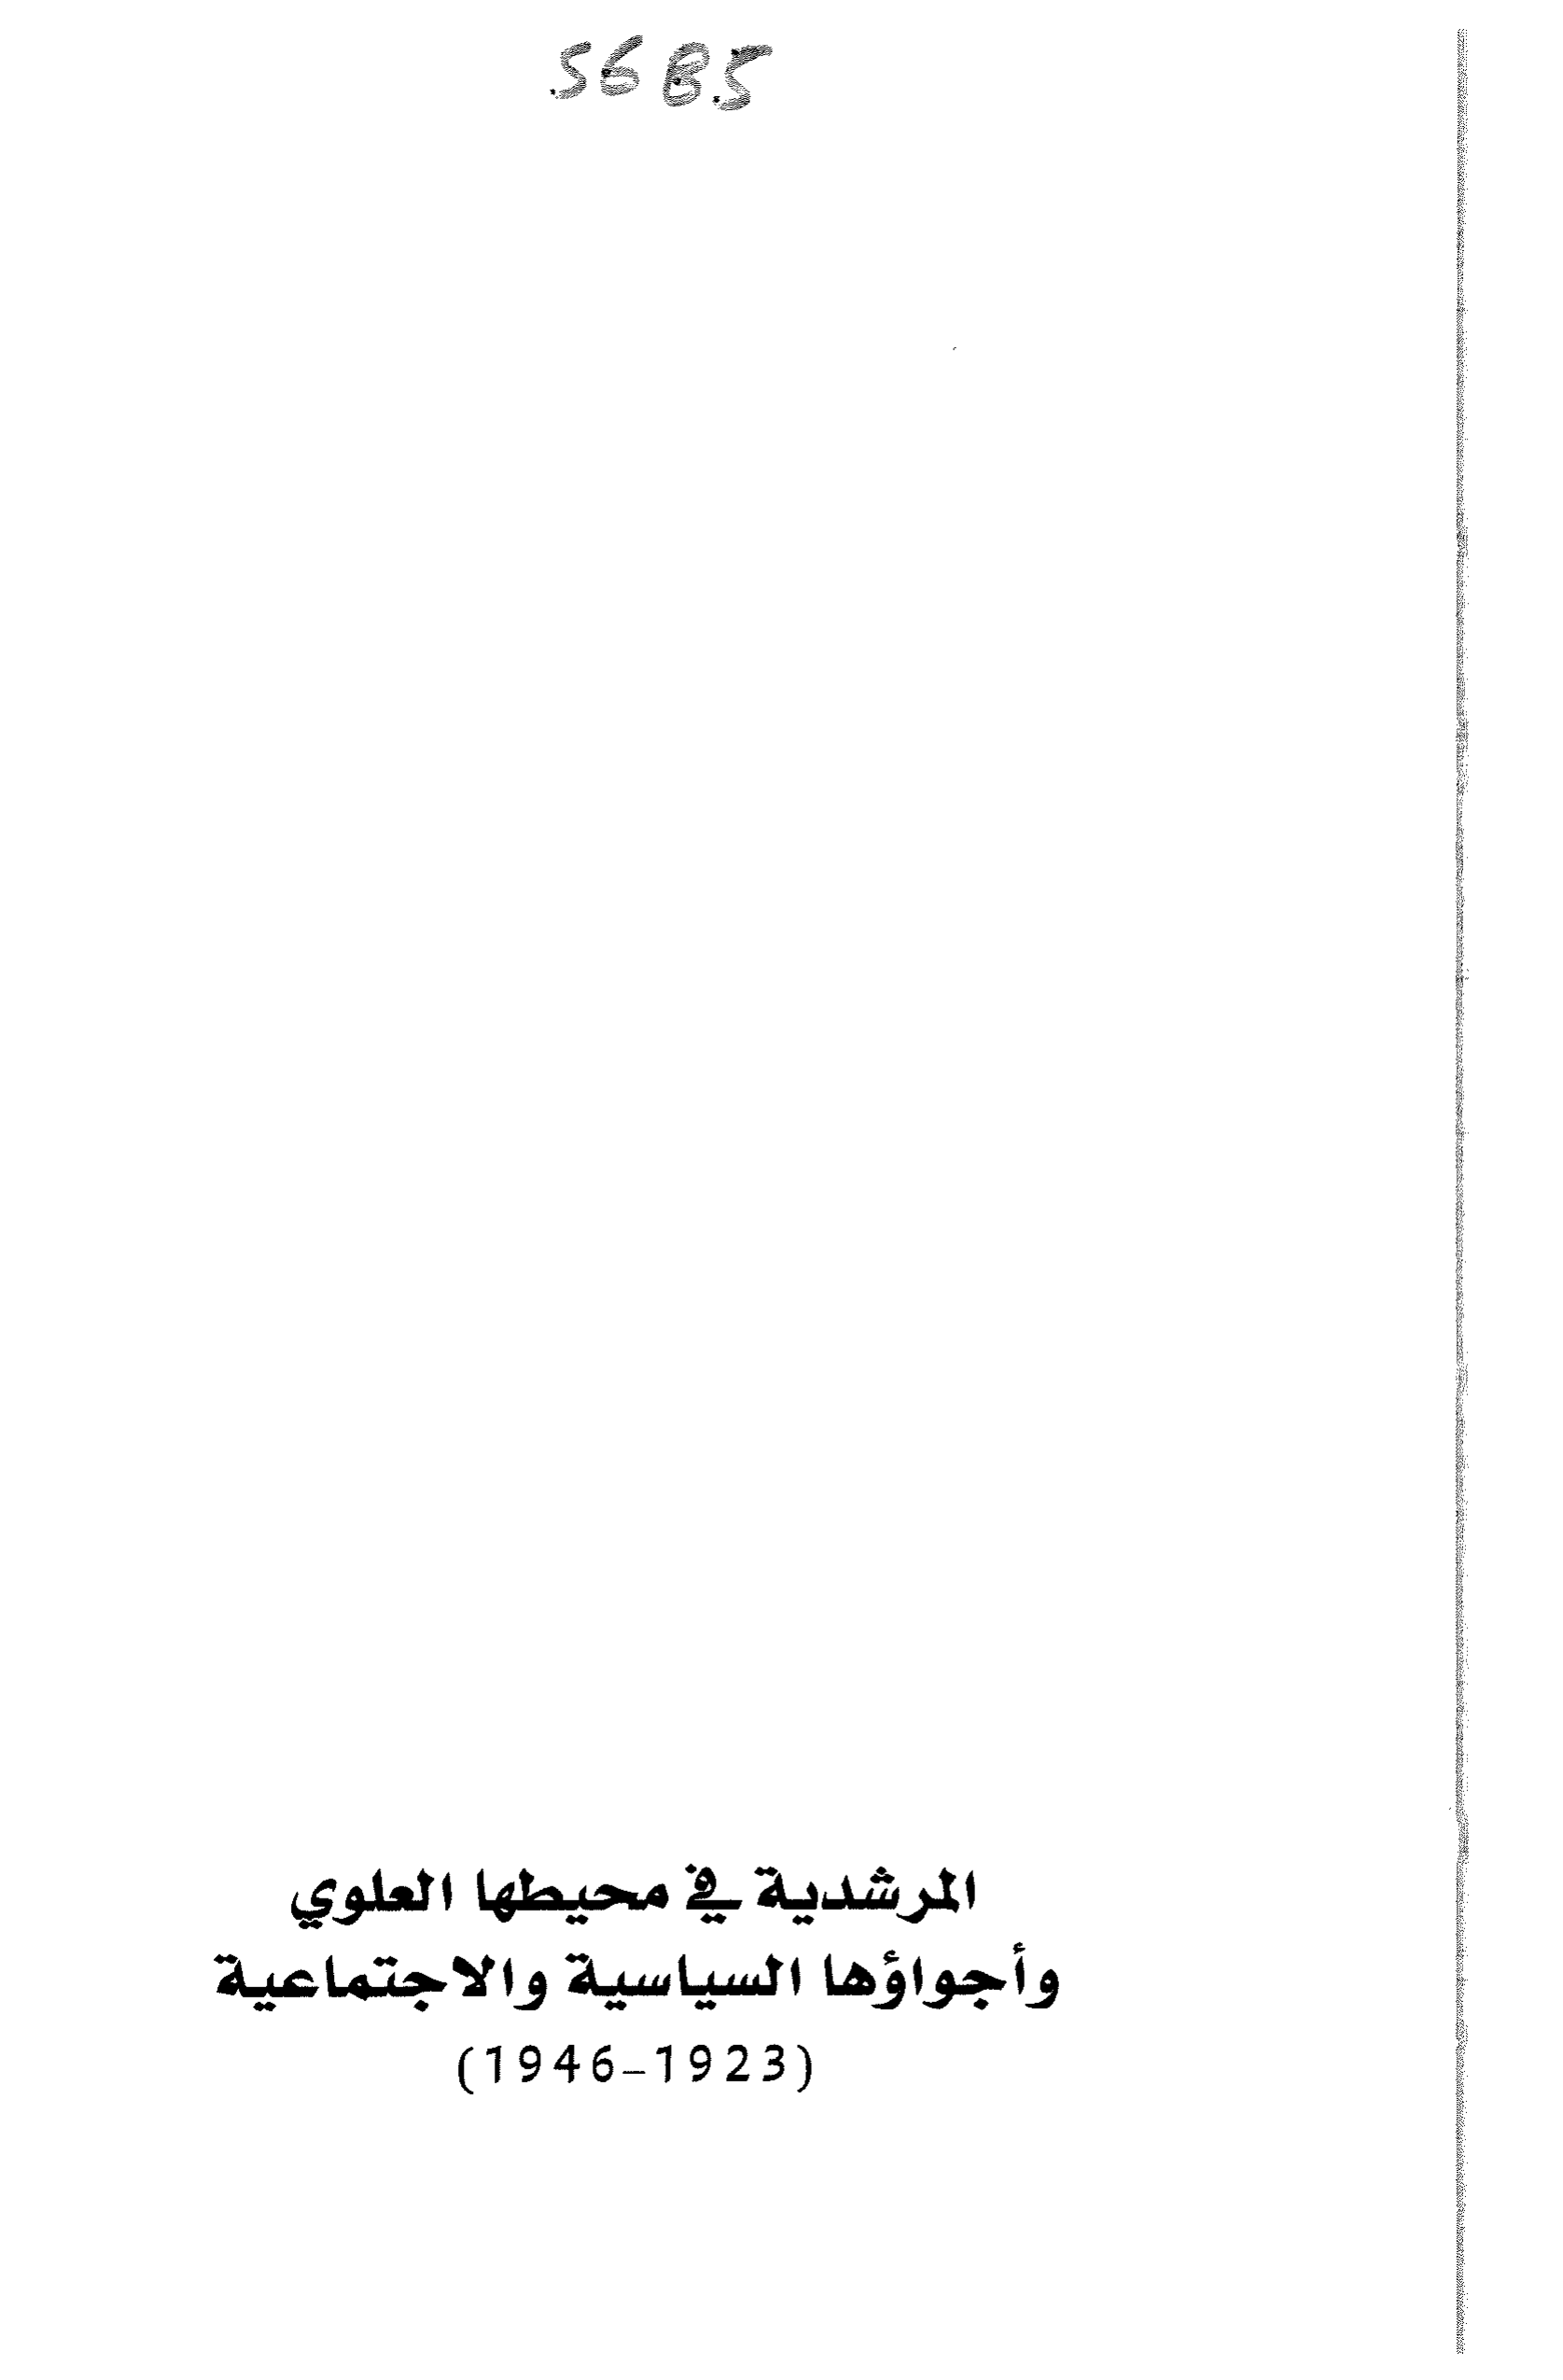 5685
المرشدية في محيطها العلوي
وأجواؤها السياسية والاجتماعية
(1923-1946)